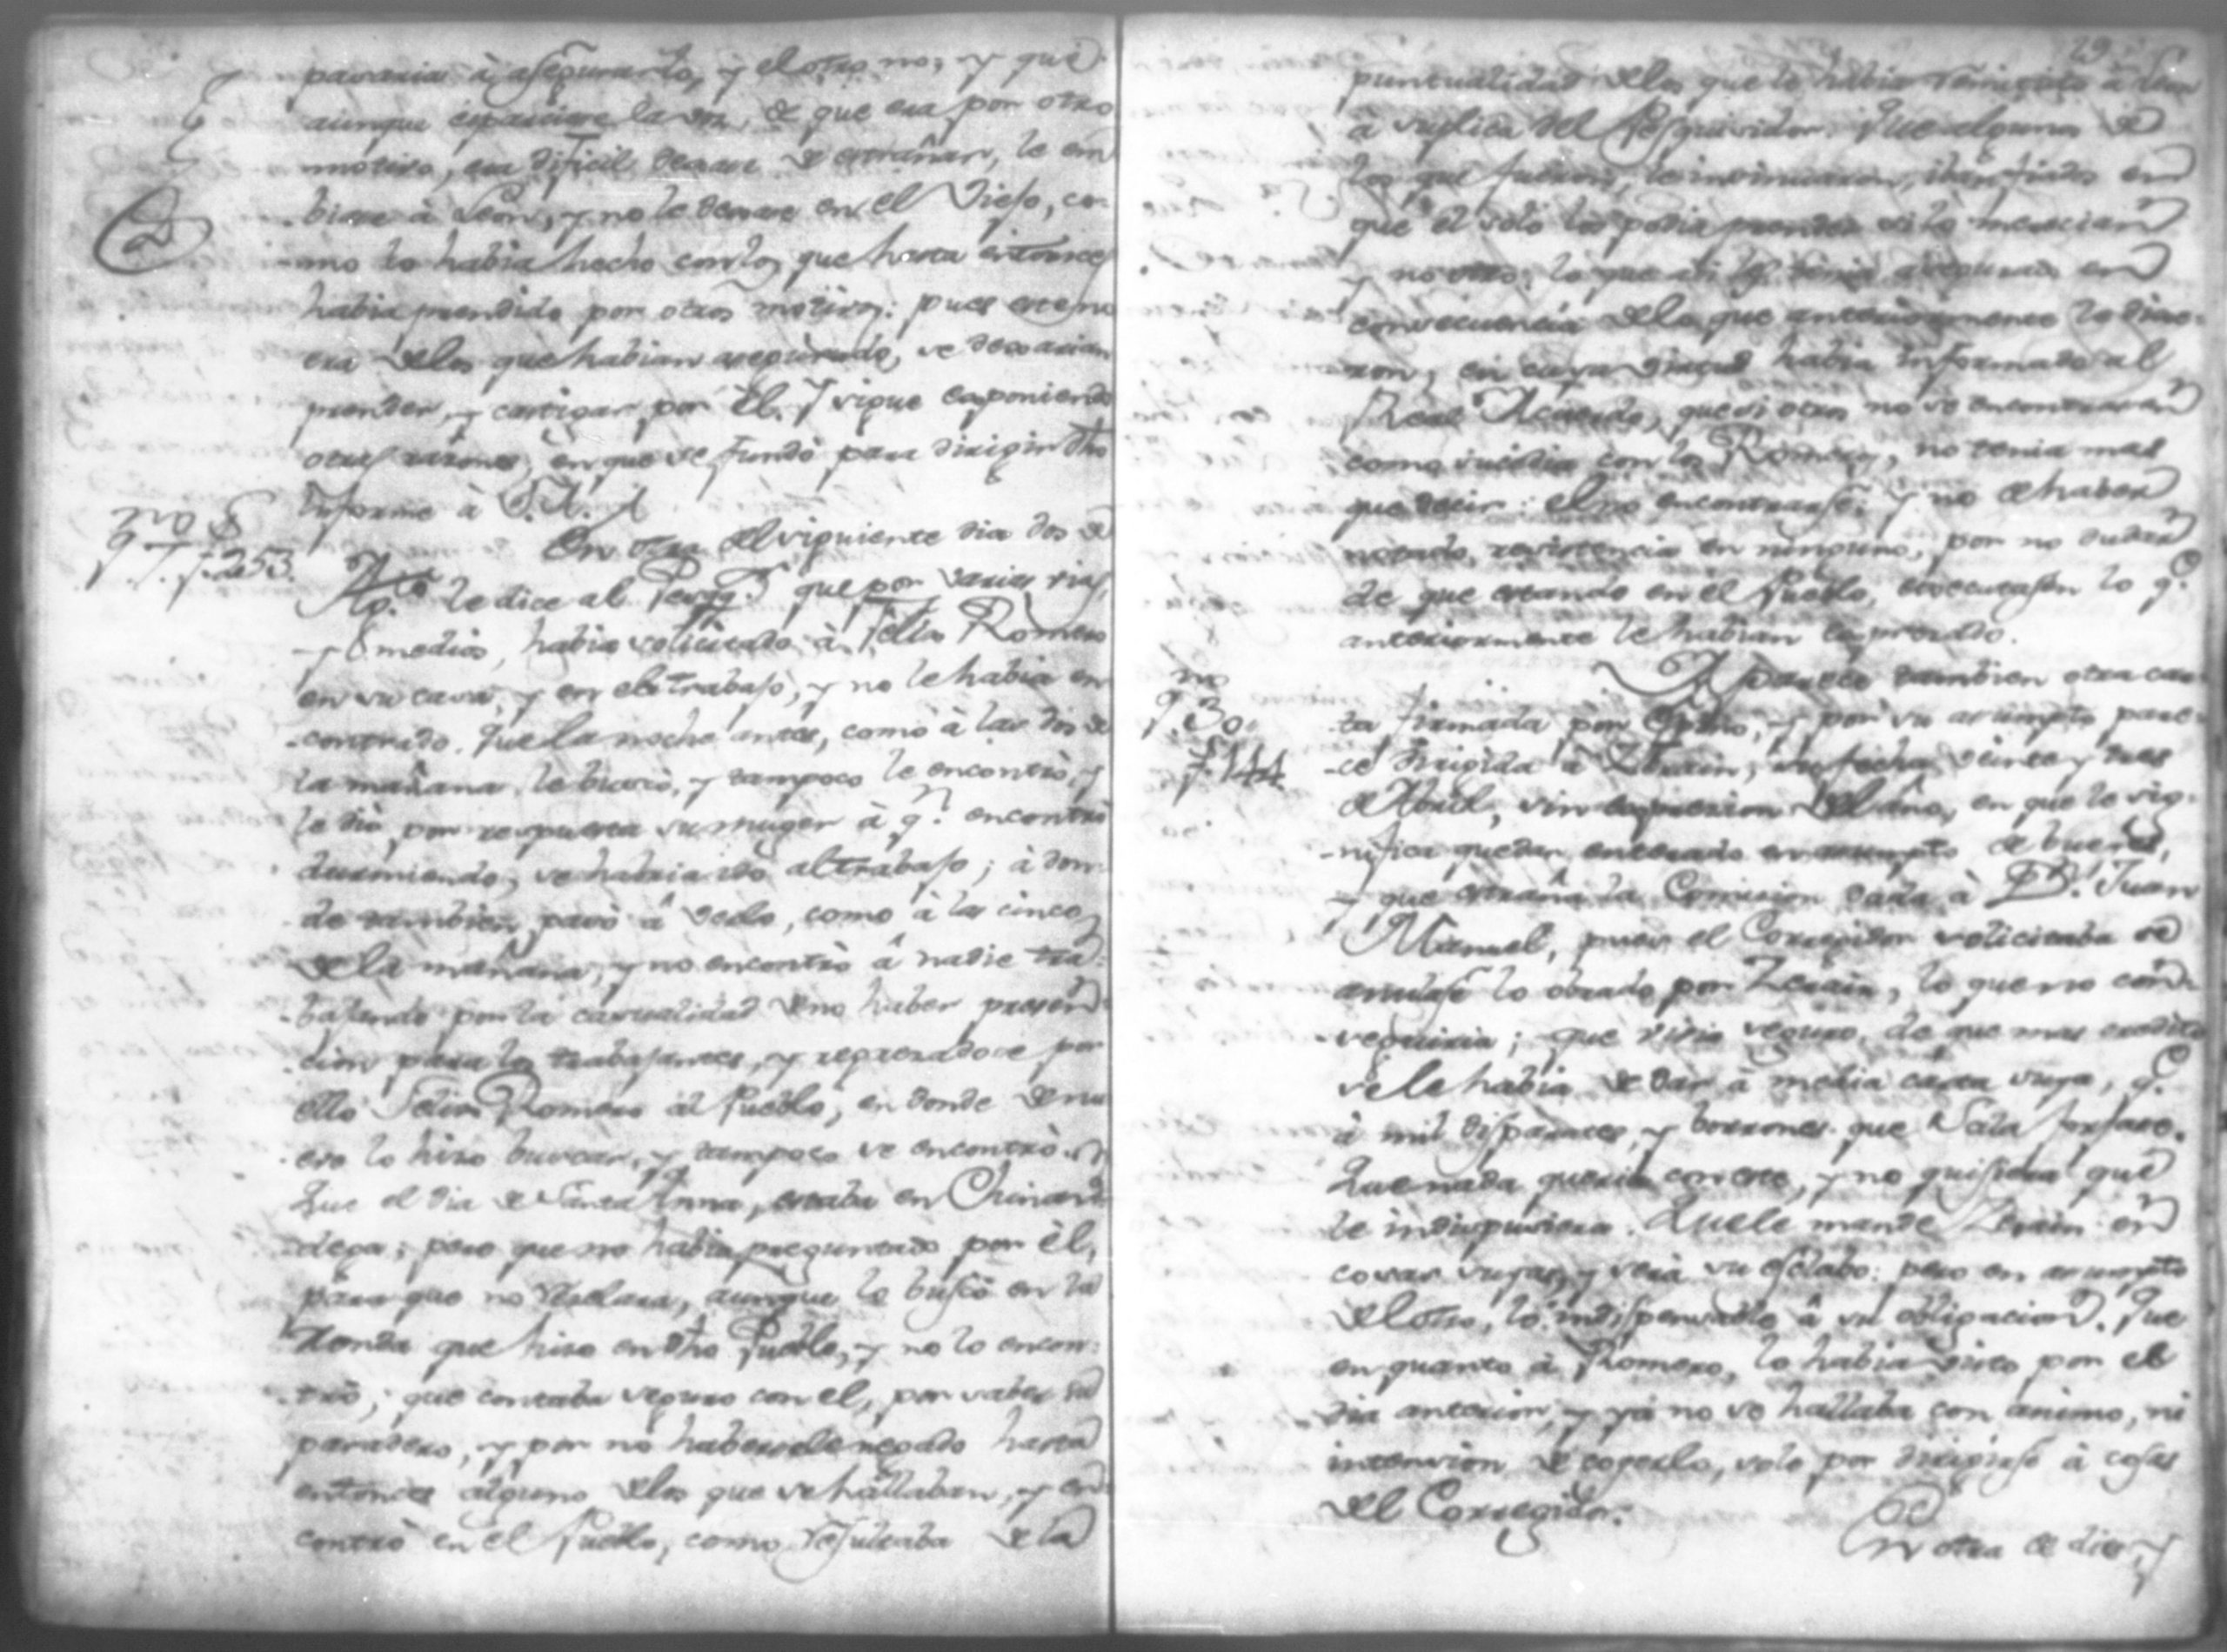 pasaria à asegurarlo, y el otro no; y que
aunque esparciese la voz, de que era por otro
motivo, era dificil dexar de estrañar, le em
biase à Leon, y no le dexase en el Viejo, co-
mo lo habia hecho con los que hasta entonces
habia prendido por otros motivos: pues este no
era de los que habian asegurado, se dexarian
prender, y castigar por èl. Y sigue exponiendo
otras razones, en que se fundò para dirigir dho
Informe à V.A.
nº 8
f. 253.
En otra del siguiente dia dos de
Agto le dice al Pesqr que por varias vias,
y medios, habia solicitado à Felix Romero
en su casa, y en el trabajo, y no le habia en
contrado. Que la noche antes, como à las dos de
la mañana le buscò, y tampoco le encontrò, y
le diò por respuesta su muger à qn encontrò
durmiendo, se habia ido al trabajo; à don-
de tambien pasò â verlo, como à las cinco
de la mañana, y no encontrò â nadie tra-
bajando por la casualidad de no haber
para los trabajantes, y regresadose por
ello Felix Romero al Pueblo, en donde de nu
evo lo hizo buscar, y tampoco se encontrò.
Que el dia de Santa Anna, estaba en Chinan-
dega; pero que no habia preguntado por èl,
para que no rezelara, aunque lo buscò en la
Ronda que hizo en dho Pueblo, y no lo encon-
trò; que contaba seguro con el, por saber su
paradero, y por no habersele negado hasta
entonces alguno de los que se hallaban, y en-
contrò en el Pueblo, como resultaba de la
29
puntualidad de los que le habia remitido à Leon
à suplica del Pesquisidor. Que algunos de
los que fueron, le insinuaron, iban fiados en
que èl solo los podia prender si lo merecian
y no otro; lo que asi tenia asegurado en
consecuencia de lo que anteriormente le dixe-
ron, en cuya virtud habia informado al
Real Acuerdo, que si otros no se encontraran
como sucedia con los Romeros, no tenia mas
que decir: el no encontrarse, y no de haber
notado resistencia en ninguno, por no dudar
de que estando en el Pueblo, executasen lo qe
anteriormente le habian expresado.
nº
9.30.
f. 144
Aparece tambien otra car-
ta firmada por y por su asumpto pare-
ce dirigida à Zerain, su fecha veinte y tres
de Abril, sin expresion del año, en que le sig-
nifica quedar enterado en asumpto de bueyes,
y que estraña la Comision dada à Dn Juan
Manuel, pues el Corregidor solicitaba se
anulase lo obrado por Zerain, lo que no con-
seguiria; que viva seguro de que mas credito
se le habia de dar à media carta suya, qe
à mil disparates, y borrones que
Que nada queria con este, y no quisiera que
le indispusiera. Que le mande Zerain en
cosas suyas, y será su esclabo: pero en asumpto
del otro, lo indispensable â su obligacion. Que
en quanto à Romero, lo habia visto por el
dia anterior, y ya no se hallaba con animo, ni
intension de cogerlo, solo por dirigirse à cosas
del Corregidor.
En otra de diez y